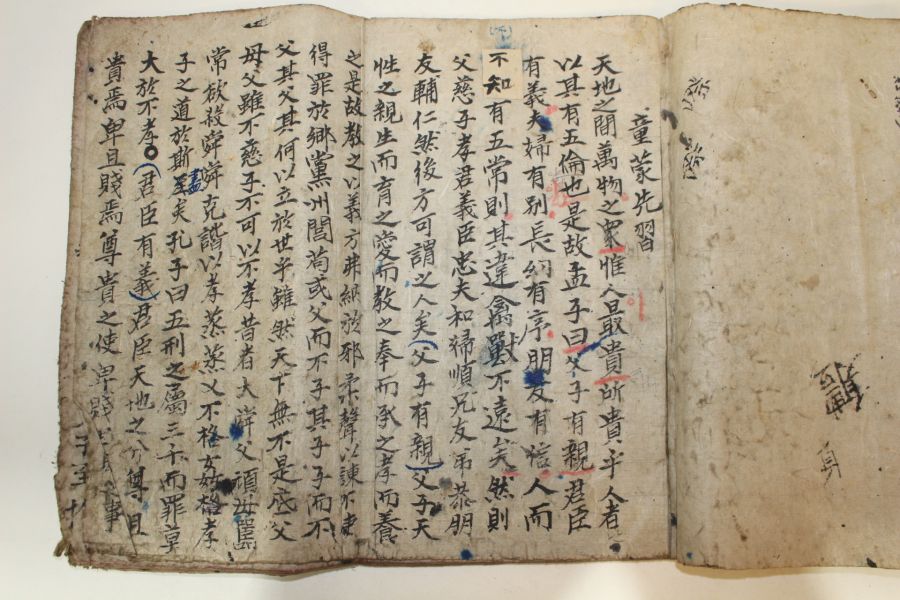 童蒙先習
天地之間萬物之衆惟人最貴所貴乎人者
以其有五倫也是故孟子曰父子有親君臣
有義夫婦有別長幼有序朋友有信人而
不知有五常則其違禽獸不遠矣然則
父慈子孝君義臣忠夫和婦順兄友弟恭朋
友輔仁然後方可謂之人矣父子有親父子天
性之親生而育之愛而教之奉而承之孝而養
之是故教之以義方弗納於邪柔聲以諫不使
得罪於鄉黨州閭苟或父而不子其子子而不
父其父其何以立於世乎雖然天下無不是底父
母父雖不慈子不可以不孝昔者大舜父頑母嚚
常欲殺舜舜克諧以孝烝烝乂不格姦格孝
子之道於斯至矣孔子曰五刑之屬三千而罪莫
大於不孝○君臣有義君臣天地之分尊且
貴焉卑且賤焉尊貴之使卑賤